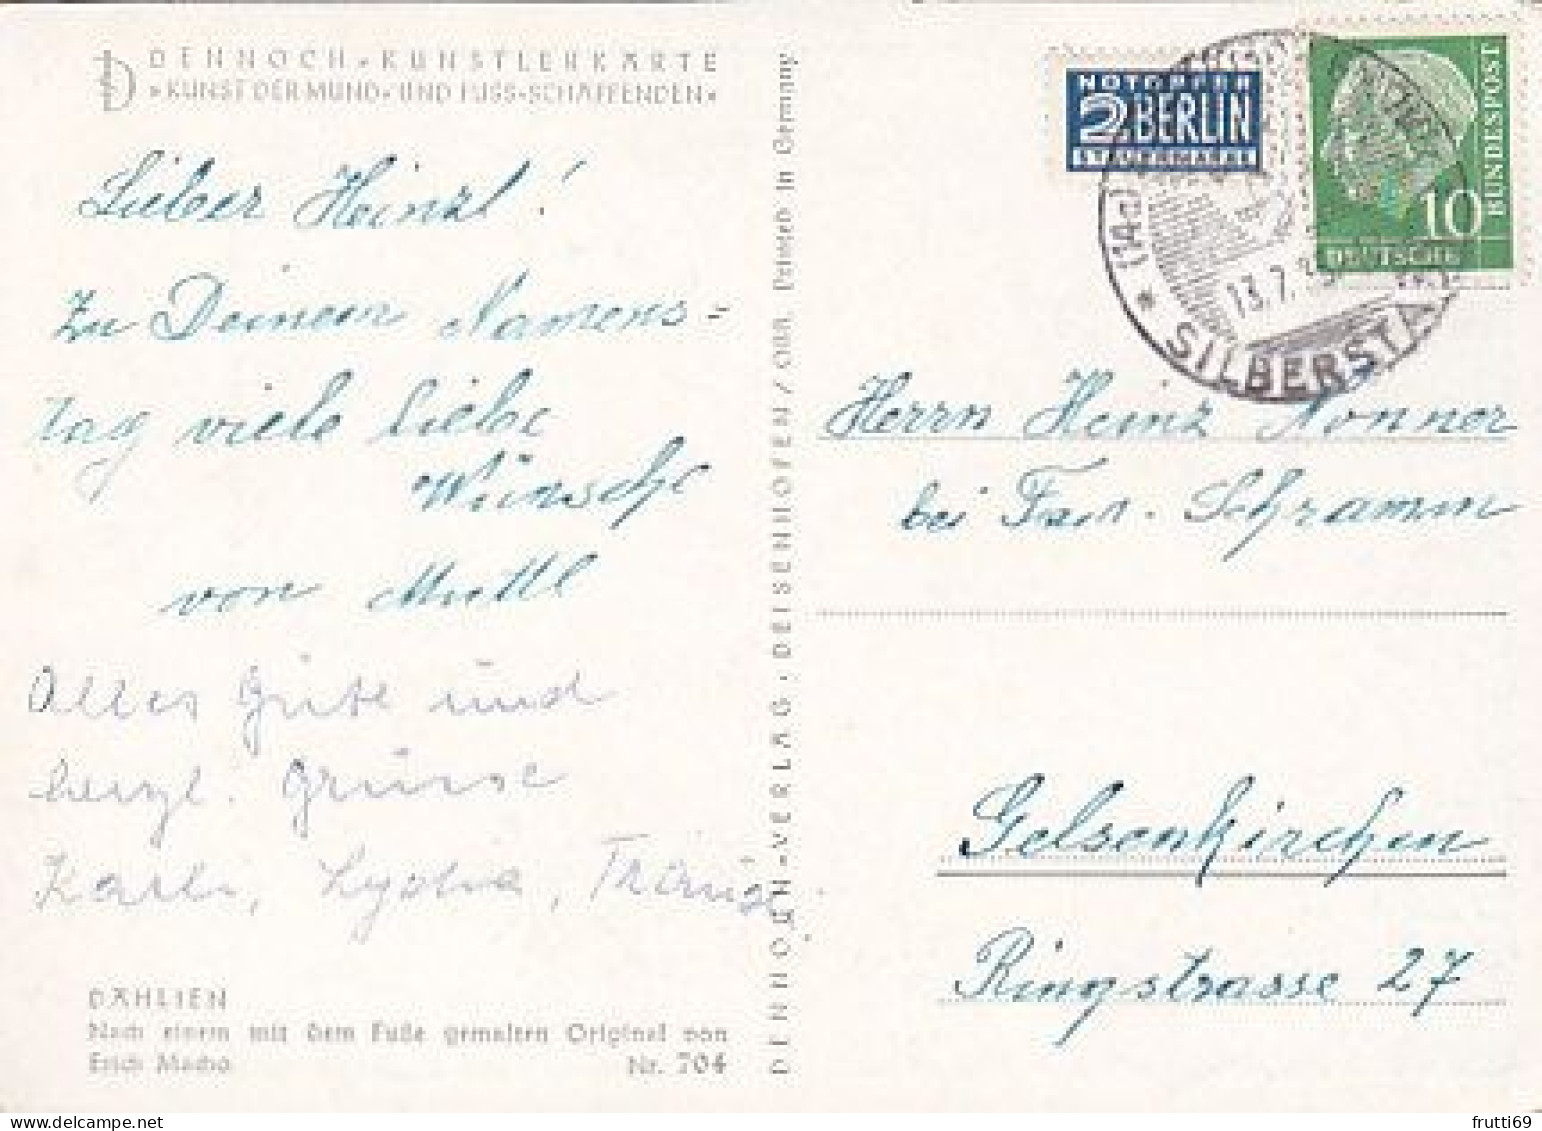 DENNOCH-KÜNSTLERKARTE
»KUNST DER MUND- UND FUSS-SCHAFFENDEN«
Lieber Heinzl!
Zu Deinem Namens=
tag viele liebe
Wünsche
von Muttl
Alles Gute und
herzl. Grüsse
Karli, Lydia,
DAHLIEN
Nach einem mit dem Fuße gemalten Original von
Erich Macho
Nr. 704
DENNOCH-VERLAG · DEISENHOFEN / OBB. Printed in Germany
NOTOPFER
2 BERLIN
STEUERMARKE
10
DEUTSCHE
BUNDESPOST
13.7.
SILBERSTA
Herrn Heinz Nonner
bei Fam. Schramm
Gelsenkirchen
Ringstrasse 27
frutti69